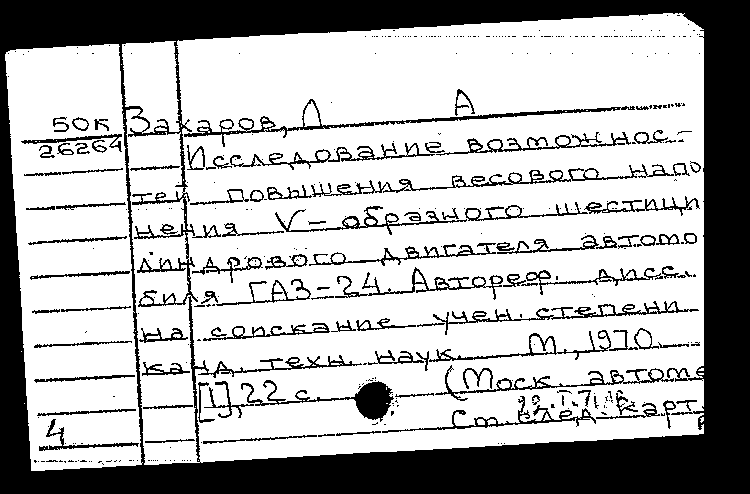 50К Захаров, Л А
26264 Исследование возможнос-
тей повышения весового напо
нения V-образного шестици
линдрового двигателя автомо
биля ГАЗ-24. Автореф. дисс.
на соискание учен. степени
канд. техн. наук. М., 1970.
[1], 22 с. (Моск. автоме
4 См. след. карт.